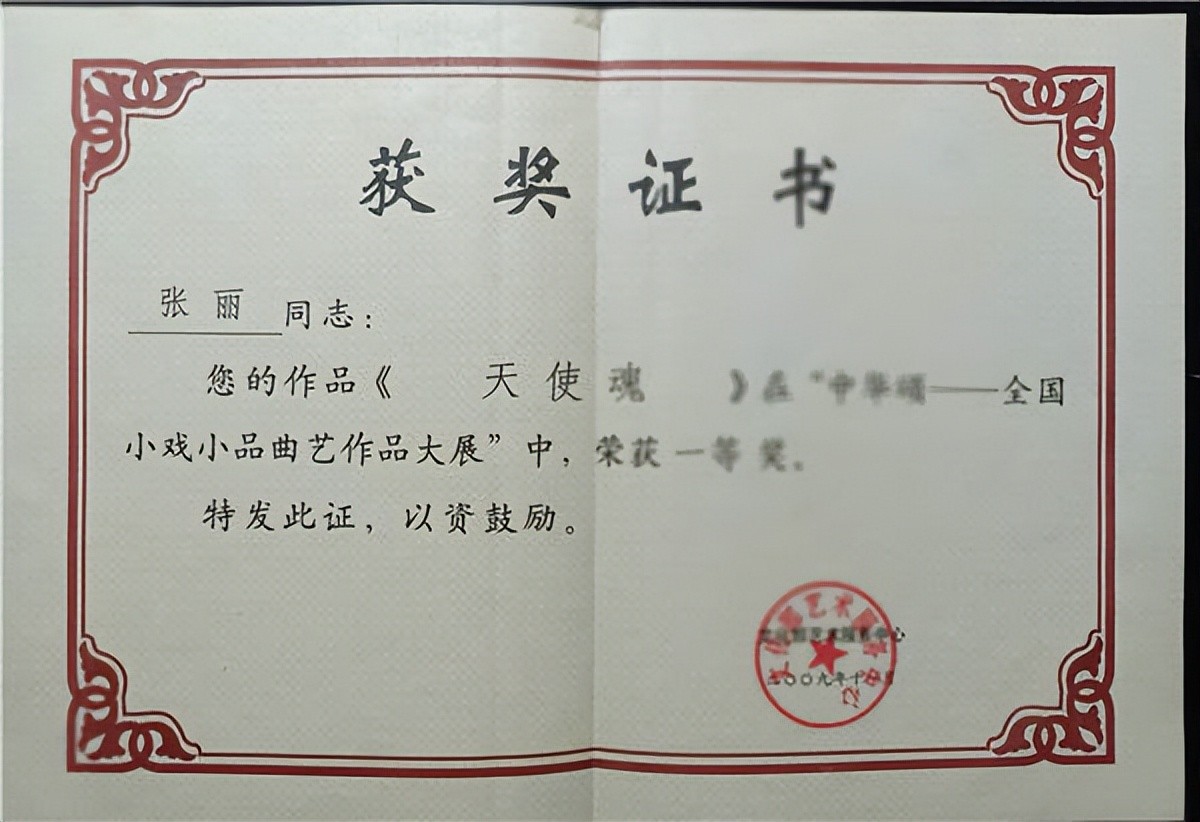 获奖证书
张丽同志：
您的作品《 天使魂 》在“中华颂——全国
小戏小品曲艺作品大展”中，荣获一等奖。
特发此证，以资鼓励。
艺术 中心
中心
二〇〇九年十 月